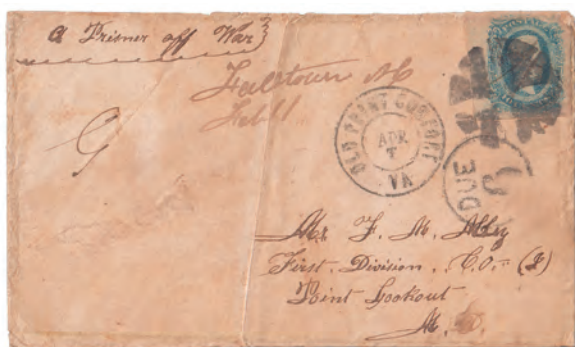 a Prisner off War
Falltown N
Feb 11
OLD POINT COMFORT
APR
7
VA
DUE
Mr. F. M. Abby
First. Division. C.O. (I)
Point Lookout
M. D.